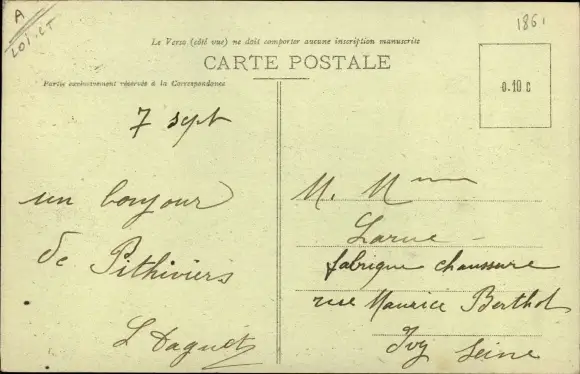 A
LOI.ET
1861
Le Verso (côté vue) ne doit comporter aucune inscription manuscrite
CARTE POSTALE
Partie exclusivement réservée à la Correspondance
0.10 c
7 sept
un bonjour
de Pithiviers
L Daguet
M. Mme
Larue
fabrique chaussure
rue Maurice Berthot
Ivy Seine